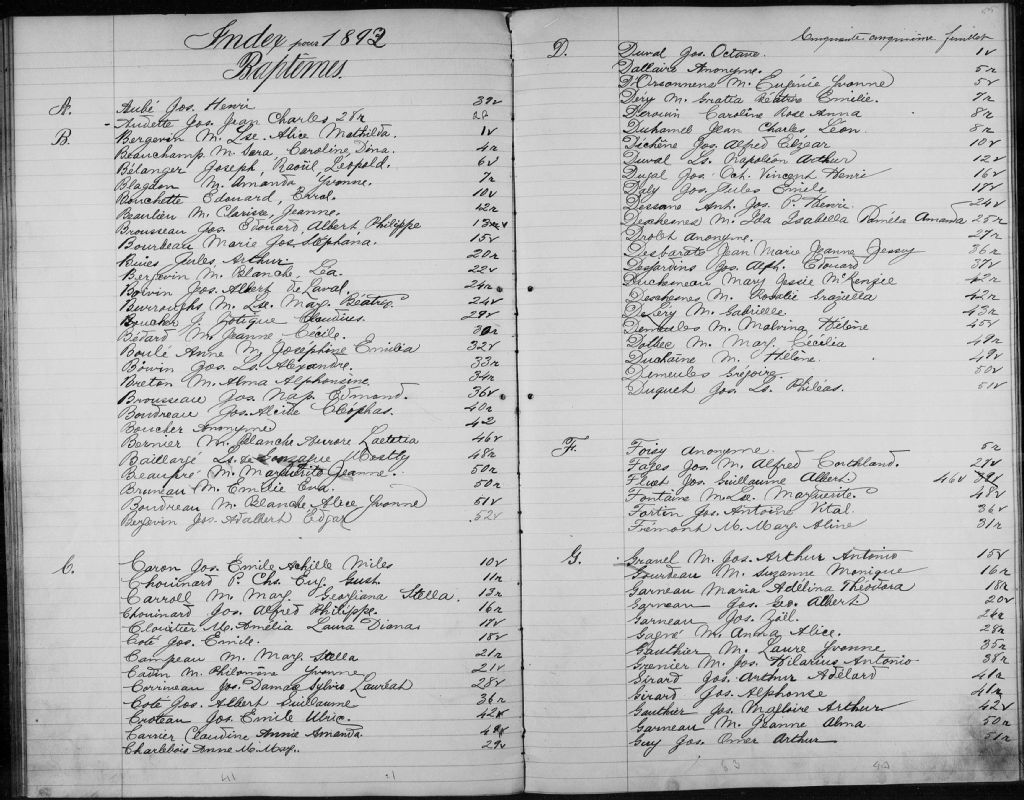 Index pour 1892
Baptêmes.
A. Aubé Jos. Henri 39v
Audette Jos. Jean Charles 28r
B. Bergevin M. Lse. Alice Mathilda. 1v
Beauchamp M. Sara Caroline Dina. 4r
Bélanger Joseph, Raoül Léopold. 6v
Blagdon M. Amanda Yvonne. 7r
Bouchette Edouard, Errol. 10v
Beaulieu M. Clarisse, Jeanne. 12r
Brousseau Jos. Edouard, Albert, Philippe 13
Bourbeau Marie Jos. Stéphana. 15v
Buies Jules Arthur 20r
Bergevin M. Blanche, Léa. 22v
Boivin Jos. Albert de Laval. 24r
Burroughs M. Lse. Mary. Béatrix 24v
Boucher J. Zotique Claudius. 29v
Bédard M. Jeanne, Cécile. 30r
Boulé Anne M. Joséphine Emilia 32v
Boivin Jos. Ls. Alexandre. 33r
Breton M. Alma Alphonsine. 34r
Brousseau Jos. Nap. Edmond. 36v
Boudreau Jos. Alcide Cléophas. 40r
Boucher Anonyme 42
Bernier M. Blanche Aurore Laetitia 46v
Baillargé Ls. de Gonzague 48r
Beaupré M. Marguerite Jeanne. 50r
Bruneau M. Emilie Eva. 50r
Boudreau M. Blanche, Alice Yvonne 51v
Bergevin Jos. Adalbert Edgar 52v
C. Caron Jos. Emile Achille Miles 10v
Chouinard P. Chs. Eug. Gust. 11r
Carroll M. Mary. Georgiana Stella. 13r
Chouinard Jos. Alfred Philippe. 16r
Cloutier M. Amélia Laura Diana 17v
Coté Jos. Emile. 18v
Campeau M. Mary. Stella 21r
Cadin M. Philomène Yvonne 21v
Corriveau Jos. Damas Sylvio Lauréat 28v
Coté Jos. Albert Guillaume 36r
Croteau Jos. Emile Ulric. 42v
Carrier Claudine Annie Amanda.
Charlebois Anne M. May. 29v
Cinquante cinquième feuillet
D. Duval Jos. Octave. 1v
Dallaire Anonyme. 5r
D'Orsonnens M. Eugénie Yvonne 5v
Déry M. Gratia Béatrice Emélie. 7r
Derouin Caroline Rose Anna 8r
Duhamel Jean Charles, Léon. 8r
Dichêne Jos. Alfred Elzéar 10v
Duval Ls. Napoléon Arthur 12v
Dugal Jos. Oct. Vincent Henri 16v
Joly Jos. Jules Emile 17v
Dessane Ant. Jos. P. Henri 24v
Deschesnes M. Ida Isabella Paméla Amanda 25r
Drolet Anonyme. 27r
Desbarats Jean Marie Jeanne Jessy 36r
Desjardins Jos. Alph. Edouard 37v
Duchesneau Mary Jessie McKenzie 42r
Deschesnes M. Rosalie Graziella 42r
DeLéry M. Gabrielle 43r
Demeules M. Malvina Hélène 45v
Doldec M. Mary. Cécilia 49r
Duchaine M. Hélène. 49v
Demeules Grégoire. 50v
Duquet Jos. Ls. Philéas. 51v
F. Foisy Anonyme. 5r
Fages Jos. M. Alfred Corthland. 27v
Fluet Jos. Guillaume Albert 46v
Fontaine M. Lse. Marguerite. 48v
Fortin Jos. Antoine Vital. 36v
Frémont M. Mary. Aline 31r
G. Gravel M. Jos. Arthur Antonio 15v
Gourdeau M. Suzanne Monique 16r
Garneau Maria Adélina Théodora 18r
Garneau Jos. Geo. Albert 20v
Garneau Jos. Zoël. 24r
Gagné M. Anna Alice. 28r
Gauthier M. Laure Yvonne 35r
Grenier M. Jos. Hilarius Antonio 38r
Girard Jos. Arthur Adélard 41r
Girard Jos. Alphonse 41r
Gauthier Jos. Magloire Arthur 42v
Garneau M. Jeanne Alma 50r
Guy Jos. Omer Arthur 51r